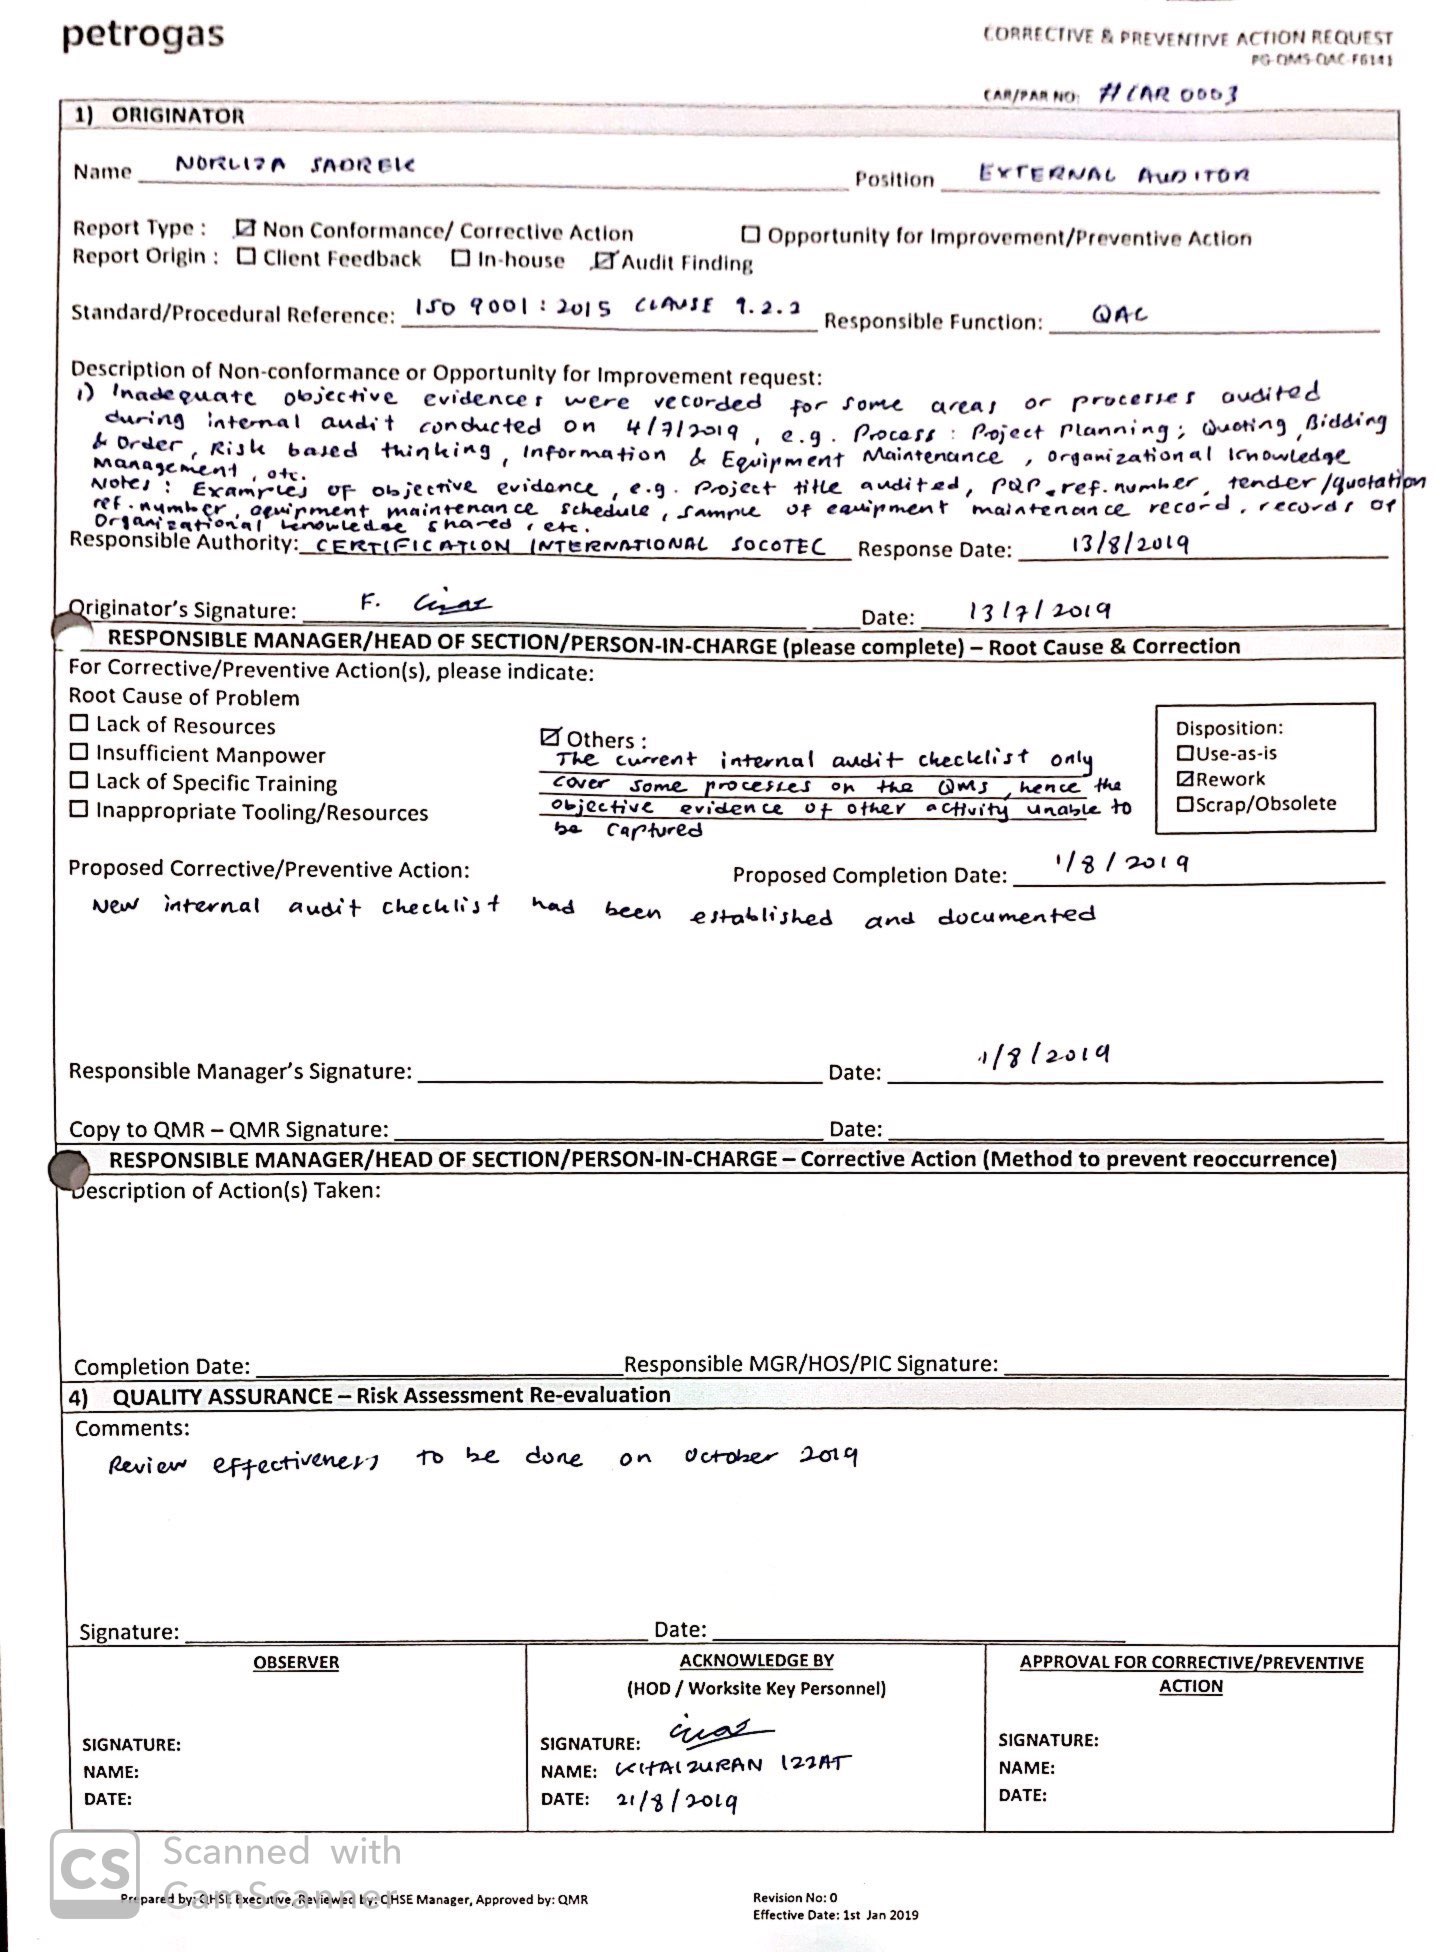 petrogas
CORRECTIVE & PREVENTIVE ACTION REQUEST
PG-QMS-QAC-F6141
CAR/PAR NO: #CAR 0003
1) ORIGINATOR
Name NORLIZA SADREK
Position EXTERNAL AUDITOR
Report Type : ☑ Non Conformance/ Corrective Action ☐ Opportunity for Improvement/Preventive Action
Report Origin : ☐ Client Feedback ☐ In-house ☑ Audit Finding
Standard/Procedural Reference: ISO 9001 : 2015 CLAUSE 9.2.2 Responsible Function: QAC
Description of Non-conformance or Opportunity for Improvement request:
1) Inadequate objective evidences were recorded for some areas or processes audited
during internal audit conducted on 4/7/2019, e.g. Process : Project Planning; Quoting, Bidding
& Order, Risk based thinking, Information & Equipment Maintenance, Organizational Knowledge
Management, etc.
Notes : Examples of objective evidence, e.g. Project title audited, PQP ref. number, tender/quotation
ref. number, equipment maintenance schedule, sample of equipment maintenance record, records of
Organizational knowledge shared, etc.
Responsible Authority: CERTIFICATION INTERNATIONAL SOCOTEC Response Date: 13/8/2019
Originator's Signature: F. Date: 13/7/2019
RESPONSIBLE MANAGER/HEAD OF SECTION/PERSON-IN-CHARGE (please complete) – Root Cause & Correction
For Corrective/Preventive Action(s), please indicate:
Root Cause of Problem
☐ Lack of Resources
☐ Insufficient Manpower
☐ Lack of Specific Training
☐ Inappropriate Tooling/Resources
☑ Others :
The current internal audit checklist only
cover some processes on the QMS, hence the
objective evidence of other activity unable to
be captured
Disposition:
☐Use-as-is
☑Rework
☐Scrap/Obsolete
Proposed Corrective/Preventive Action: Proposed Completion Date: 1/8/2019
New internal audit checklist had been established and documented
Responsible Manager's Signature: Date: 1/8/2019
Copy to QMR – QMR Signature: Date:
RESPONSIBLE MANAGER/HEAD OF SECTION/PERSON-IN-CHARGE – Corrective Action (Method to prevent reoccurrence)
Description of Action(s) Taken:
Completion Date: Responsible MGR/HOS/PIC Signature:
4) QUALITY ASSURANCE – Risk Assessment Re-evaluation
Comments:
Review effectiveness to be done on October 2019
Signature: Date:
OBSERVER
SIGNATURE:
NAME:
DATE:
ACKNOWLEDGE BY
(HOD / Worksite Key Personnel)
SIGNATURE:
NAME: KHAIZURAN IZZAT
DATE: 21/8/2019
APPROVAL FOR CORRECTIVE/PREVENTIVE
ACTION
SIGNATURE:
NAME:
DATE:
CS Scanned with
CamScanner
Prepared by: QHSE Executive, Reviewed by: QHSE Manager, Approved by: QMR
Revision No: 0
Effective Date: 1st Jan 2019